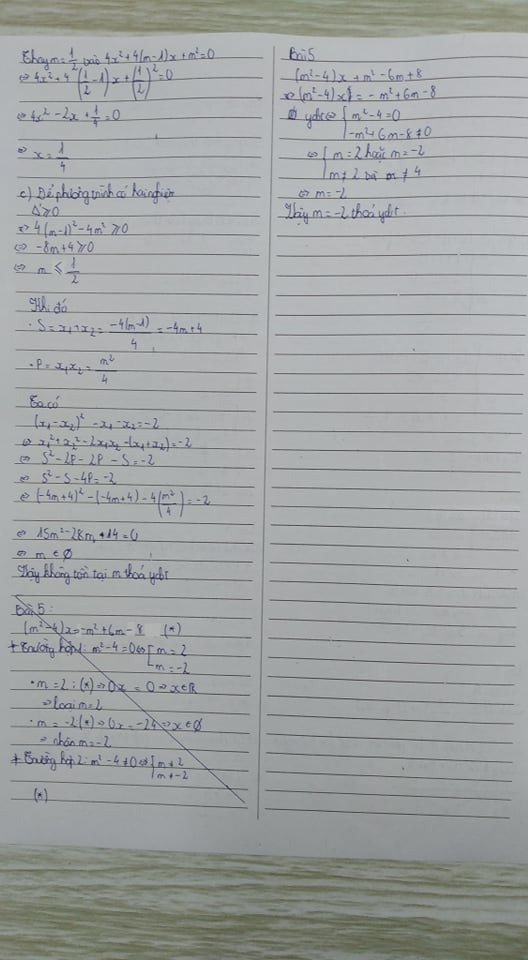 Thay m = 1/2 vào 4x² + 4(m-1)x + m² = 0
⇔ 4x² + 4(1/2 - 1)x + (1/2)² = 0
⇔ 4x² - 2x + 1/4 = 0
⇔ x = 1/4
c) Để phương trình có hai nghiệm
Δ' ≥ 0
⇔ 4(m-1)² - 4m² ≥ 0
⇔ -8m + 4 ≥ 0
⇔ m ≤ 1/2
Khi đó
• S = x₁ + x₂ = -4(m-1)/4 = -4m + 4
• P = x₁x₂ = m²/4
Ta có
(x₁ - x₂)² - x₁ - x₂ = -2
⇔ x₁² + x₂² - 2x₁x₂ - (x₁ + x₂) = -2
⇔ S² - 2P - 2P - S = -2
⇔ S² - S - 4P = -2
⇔ (-4m+4)² - (-4m+4) - 4(m²/4) = -2
⇔ 15m² - 28m + 14 = 0
⇔ m ∈ ∅
Vậy không tồn tại m thoả ycbt
Bài 5:
(m² - 4)x = -m² + 6m - 8 (*)
+ Trường hợp 1: m² - 4 = 0 ⇔ [ m = 2
m = -2
• m = 2: (*) ⇒ 0x = 0 ⇒ x ∈ R
⇒ loại m = 2
• m = -2 (*) ⇒ 0x = -24 ⇒ x ∈ ∅
⇒ nhận m = -2
+ Trường hợp 2: m² - 4 ≠ 0 ⇔ { m ≠ 2
m ≠ -2
(*)
Bài 5
(m² - 4)x + m² - 6m + 8
⇔ (m² - 4)x = -m² + 6m - 8
ycbt ⇔ { m² - 4 = 0
-m² + 6m - 8 ≠ 0
⇔ { m = 2 hoặc m = -2
m ≠ 2 và m ≠ 4
⇔ m = -2
Vậy m = -2 thoả ycbt.